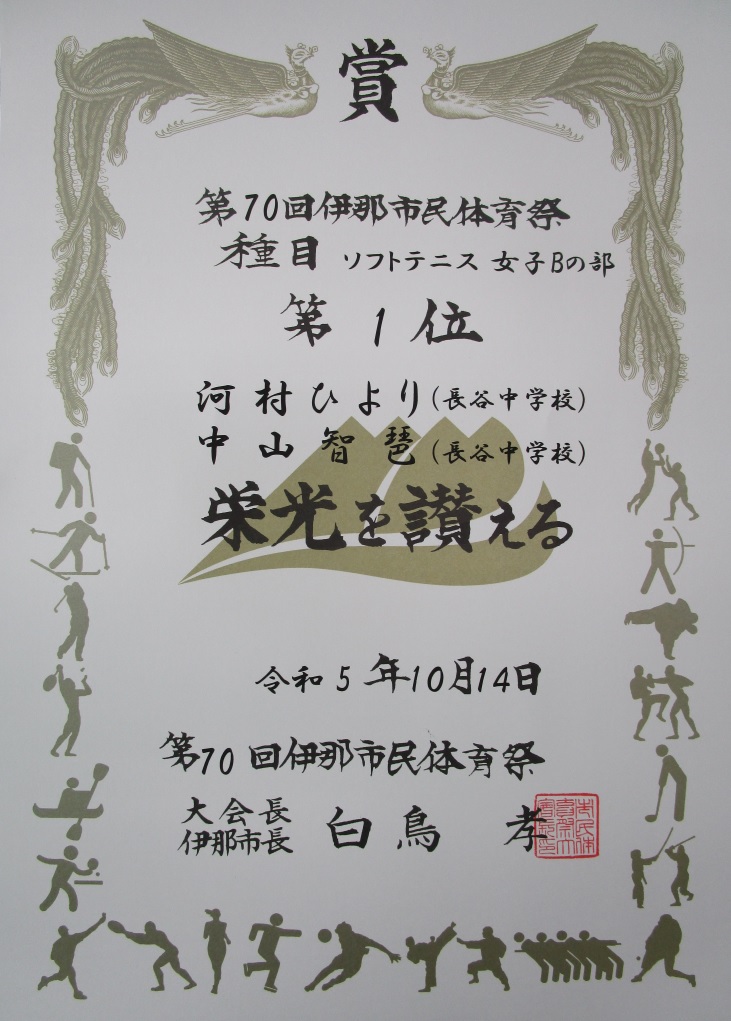 賞
第70回伊那市民体育祭
種目 ソフトテニス 女子Bの部
第 1 位
河村ひより(長谷中学校)
中山智琶(長谷中学校)
栄光を讃える
令和5年10月14日
第70回伊那市民体育祭
大会長
伊那市長 白鳥 孝